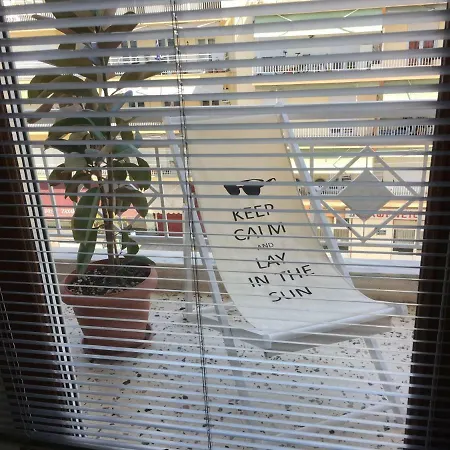 KEEP
CALM
AND
LAY
IN THE
SUN